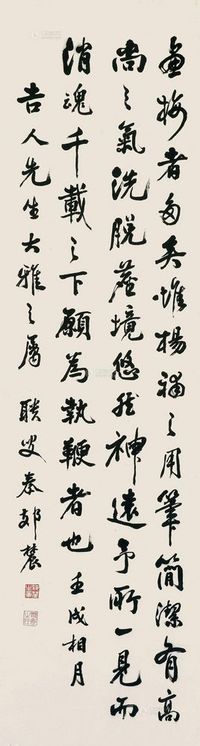 画梅者多矣惟杨补之用笔简洁有高
尚之氣洗脱蹊境悠然神遠予所一見而
消魂千載之下願為執鞭者也壬戌相月
吉人先生大雅之屬 聯叟秦邺農